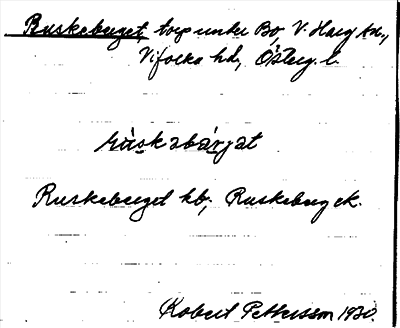 Ruskeberget, torp under Bo, V. Harg sn.,
Vifolka hd, Österg. l.
rùskabárjat
Ruskeberget hb; Ruskeberg ek.
Robert Pettersson 1930.